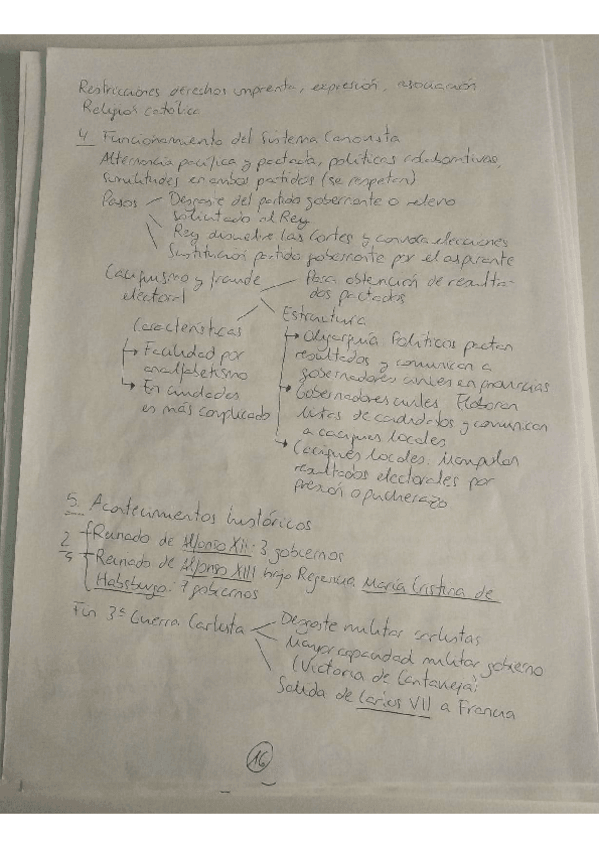 Restricciones derechos imprenta, expresión, asociación
Religión católica
4. Funcionamiento del Sistema Canovista
Alternancia pacífica y pactada, políticas colaborativas,
similitudes en ambos partidos (se respetan)
Pasos
Desgaste del partido gobernante o relevo
solicitado al Rey
Rey disuelve las Cortes y convoca elecciones
Sustitución partido gobernante por el aspirante
Caciquismo y fraude
electoral
Para obtención de resulta-
dos pactados
Características
Facilidad por
analfabetismo
En ciudades
es más complicado
Estructura
Oligarquía Políticos pactan
resultados y comunican a
gobernadores civiles en provincias
Gobernadores civiles. Elaboran
listas de candidatos y comunican
a caciques locales
Caciques locales. Manipulan
resultados electorales por
presión o pucherazo
5. Acontecimientos históricos
Reinado de Alfonso XII: 3 gobiernos
Reinado de Alfonso XIII bajo Regencia María Cristina de
Habsburgo: 7 gobiernos
Fin 3ª Guerra Carlista
Desgaste militar carlistas
Mayor capacidad militar gobierno
(Victoria de Cantavieja)
Salida de Carlos VII a Francia
16